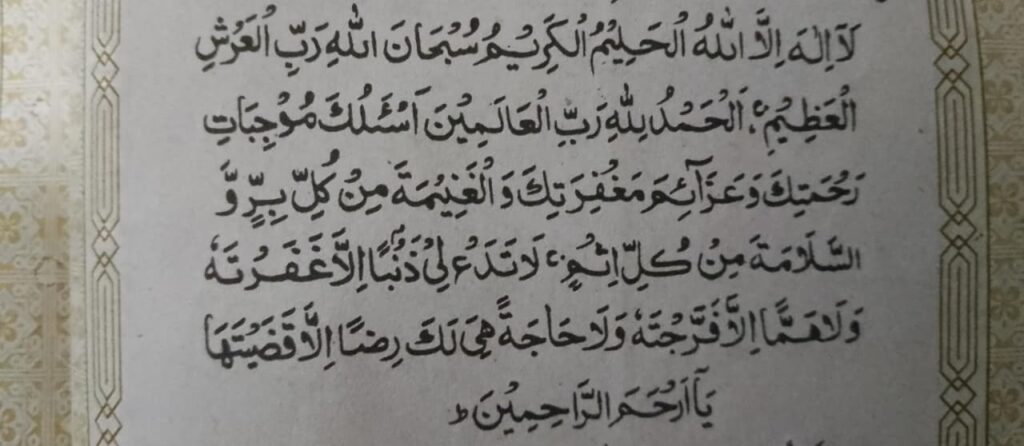 لَآ اِلٰهَ اِلَّا اللّٰهُ الْحَلِيْمُ الْكَرِيْمُ سُبْحَانَ اللّٰهِ رَبِّ الْعَرْشِ
الْعَظِيْمِ ؕ اَلْحَمْدُ لِلّٰهِ رَبِّ الْعَالَمِيْنَ اَسْئَلُكَ مُوْجِبَاتِ
رَحْمَتِكَ وَعَزَآئِمَ مَغْفِرَتِكَ وَالْغَنِيْمَةَ مِنْ كُلِّ بِرٍّ وَّ
السَّلَامَةَ مِنْ كُلِّ اِثْمٍ ؕ لَا تَدَعْ لِيْ ذَنْۢبًا اِلَّا غَفَرْتَهٗ
وَلَا هَمًّا اِلَّا فَرَّجْتَهٗ وَلَا حَاجَةً هِيَ لَكَ رِضًا اِلَّا قَضَيْتَهَا
يَآ اَرْحَمَ الرَّاحِمِيْنَ ط